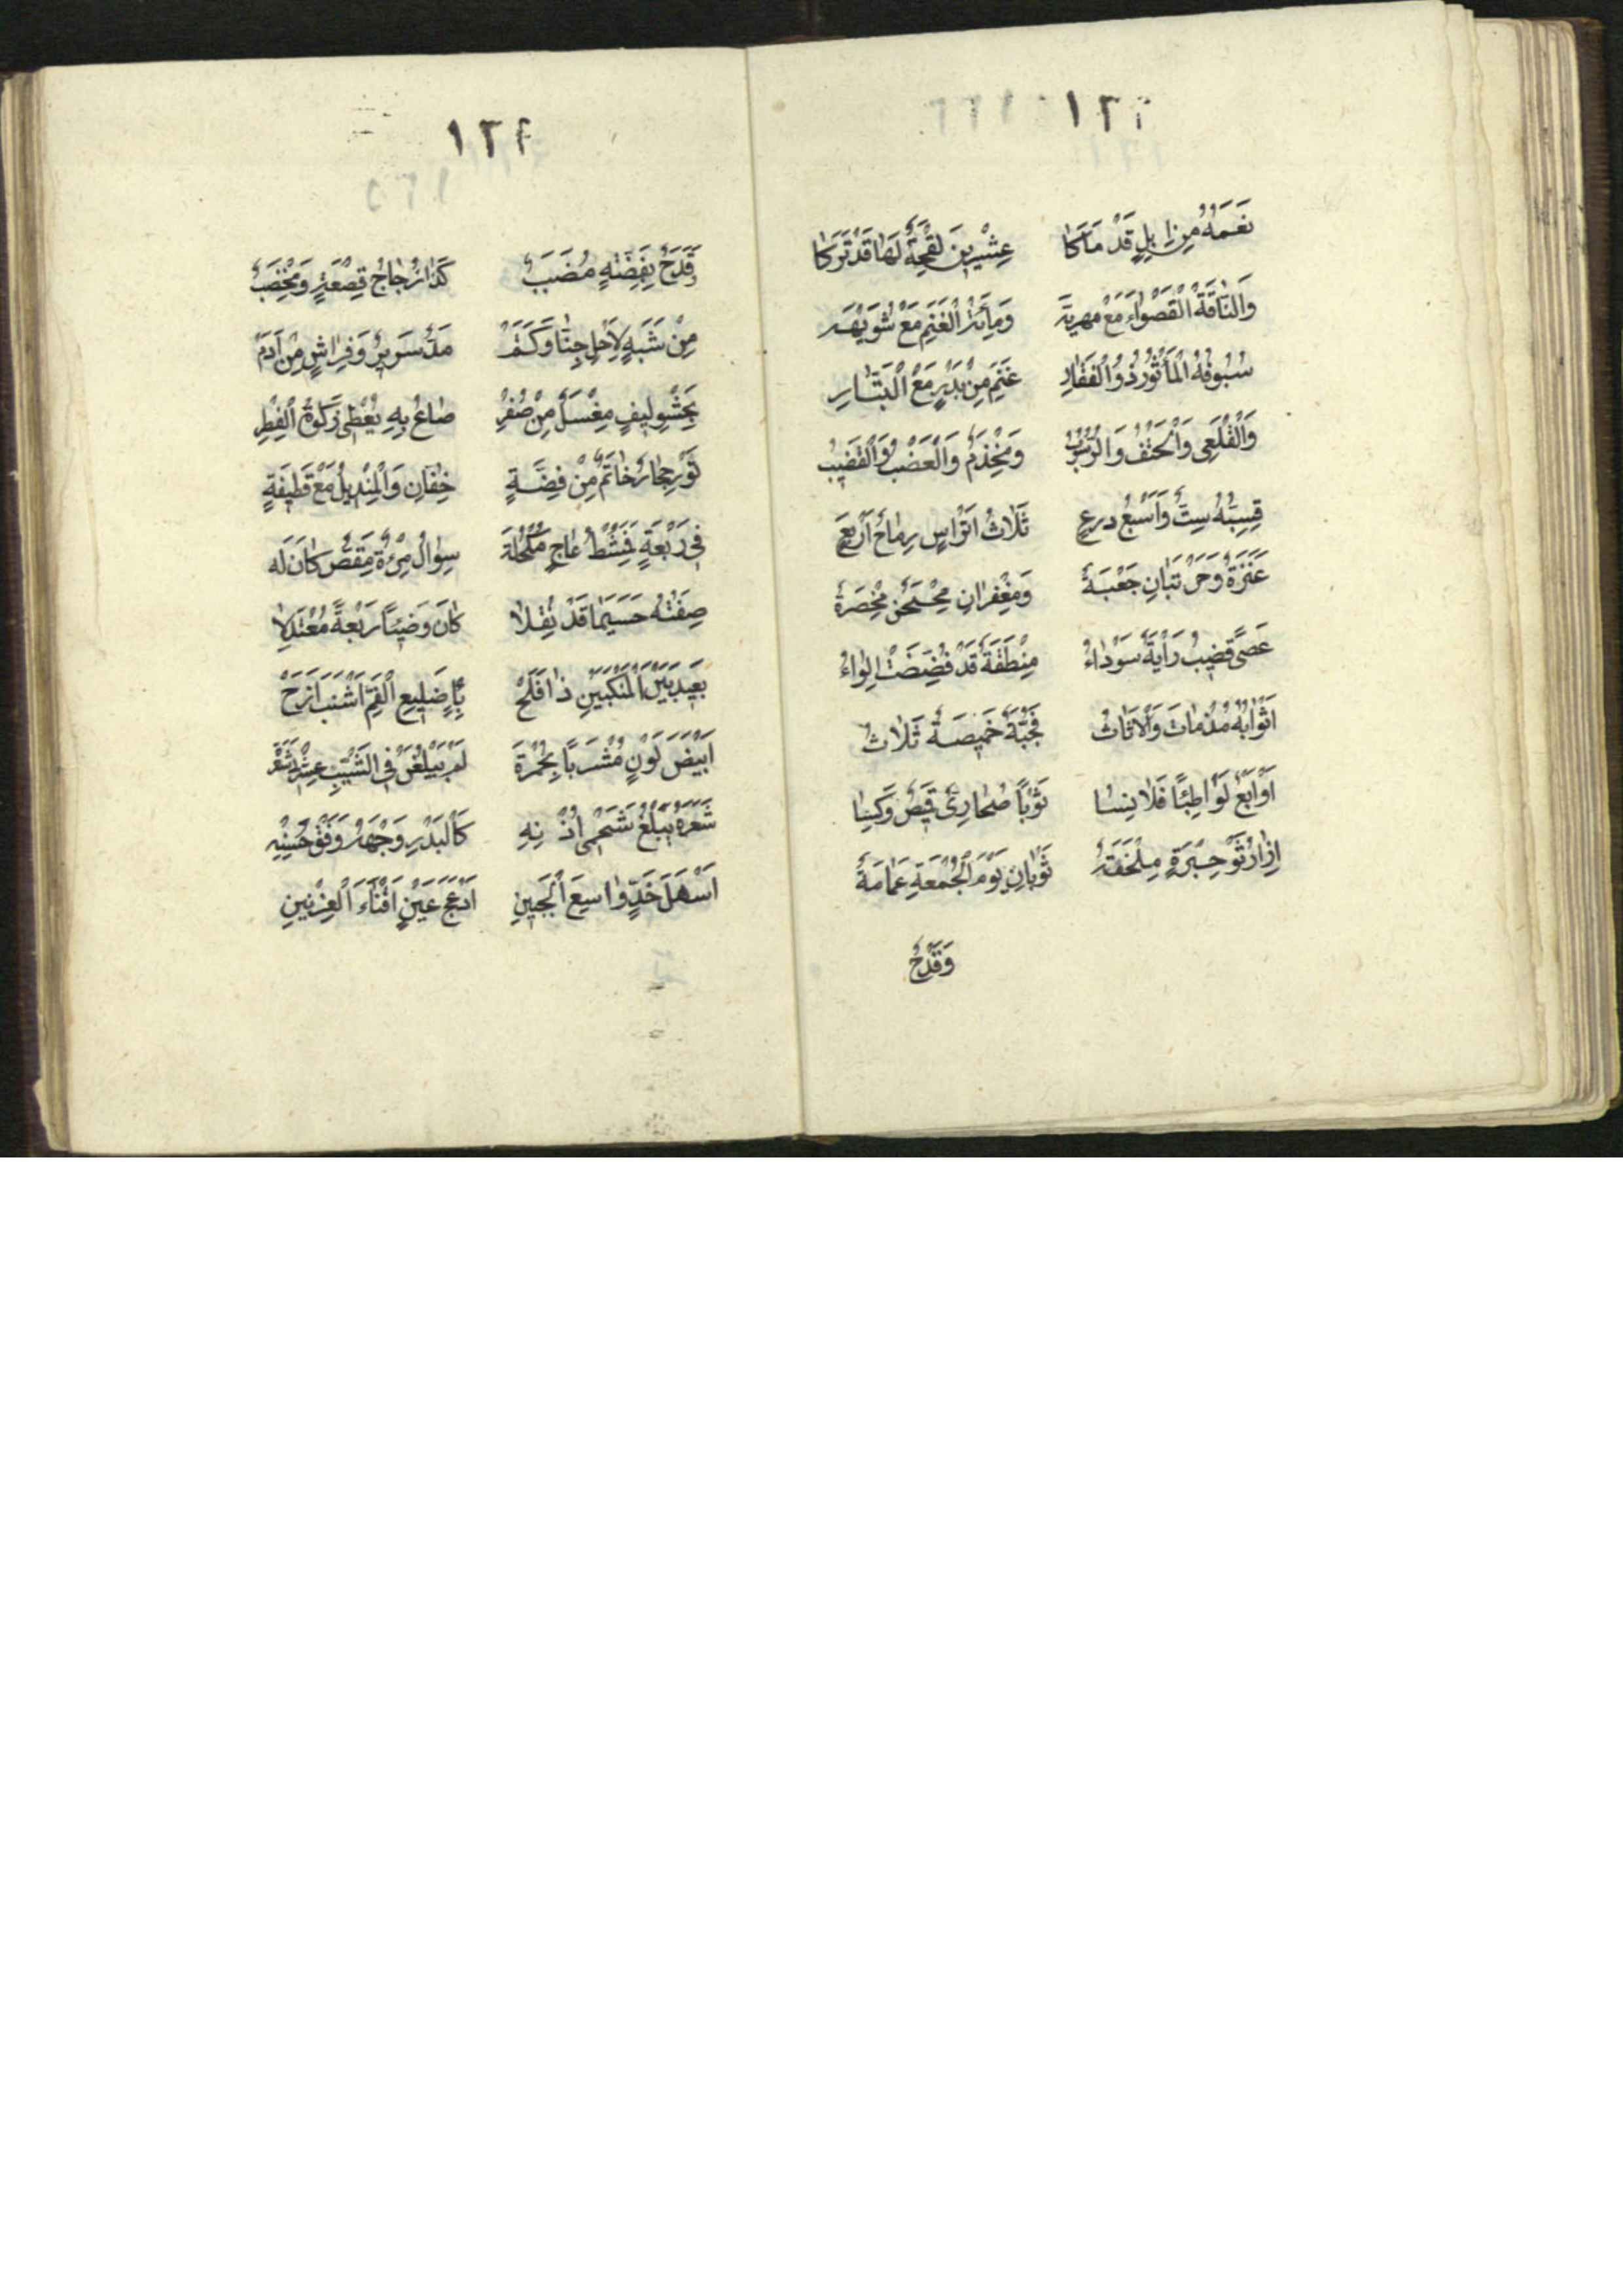 ١٢١
نَعَمُهُ مِنْ اِبِلٍ قَدْ مَلَكَا عِشْرِينَ لِقْحَةً لَهَا قَدْ تَرَكَا
وَالنَّاقَةُ الْقَصْوَاءِ مَعْ مَهرية وَمِأَةُ الْغَنَمِ مَعْ شُوَيْهَه
سُيُوفُهُ الْمَأْثُورُ ذُو الْفَقَارِ غَنِمَ مِنْ بَدْرٍ مَعَ الْبَتَّارِ
وَالْقُلَعِى وَالْحَتْفُ وَالرَّسُوبُ وَمِخْذَمٌ وَالْعَضْبُ وَالْقَضِيبُ
قِسِيُّهُ سِتٌّ وَاَسْبُعُ درع ثَلَاثُ اَتْرَاسٍ رِمَاحٌ اَرْبَعَ
عَنَزَةٌ وَحَرْبَتَانِ جَعْبَةٌ وَمِغْفَرَانِ مِحْجَنٌ مِخْصَرَةٌ
عَصًى قَضِيبٌ رَايَةٌ سَوْدَاءُ مِنْطَقَةٌ قَدْ فُضِّضَتْ لِوَاءُ
اَثْوَابُهُ وَالْاَثَاثُ فَجُبَّةٌ خَمِيصَةٌ ثَلَاثُ
اَوْ اَرْبَعٌ لَوَاطِئًا قَلَانِسَا ثَوْبًا صُحَارِىٌّ قَمِيصٌ وَكِسَا
اِزَارٌ ثَوْ حِبَرَةٍ مِلْحَفَةٌ ثَوْبَانِ يَوْمَ الْجُمْعَةِ عَمَامَةٌ
وَقَدَحٌ
١٢٢
وَقَدَحٌ بِفِضَّتِهِ مُضَبَّبٌ كَذَا زُجَاجٌ قِصْعَةٍ وَمِخْضَبٌ
مِنْ شَبَهٍ لِاَجْلِ حِنَّا وَكَتَمْ مُدٌّ سَرِيرٌ وَفِرَاشٍ مِنْ اَدَمْ
بِحَشْوِ لِيفٍ مِغْسَلٌ مِنْ صُفْرِ صَاعٌ بِهِ يُعْطِى زَكَوةَ الْفِطْرِ
تَوْرُ حِجَارٍ خَاتَمٌ مِنْ فِضَّةٍ خُفَّانِ وَالْمِنْدِيلُ مَعْ قَطِيفَةٍ
فِى رَبْعَةٍ فَمُشْطُ عَاجٍ مُكْحُلَة سِوَاكُ مِرْءَةٌ مِقَصٌّ كَانَ لَه
صِفَتُهُ حَسَبَمَا قَدْ نُقِلَا كَانَ وَضِيئًا رَبْعَةً مُعْتَدِلَا
بَعِيدَ بَيْنَ الْمَنْكِبَيْنِ ذَا فَلَجْ ضَلِيعِ الْفَمِ اَشْنَبَ اَزَجّ
اَبْيَضَ لَوْنٍ مُشْرَبًا بِحُمْرَةٍ لَمْ يَبْلُغَنْ فِى الشَّيْبِ عِشْرِى شَعْرَة
شَعْرُهُ يَبْلُغُ شَحْمَى اُذْنِهِ كَالْبَدْرِ وَجْهُهُ وَفَوْقَ حُسْنِهِ
اَسْهَلَ خَدٍّ وَاسِعَ الْجَبِينِ اَدْعَجَ عَيْنٍ اَقْنَاءَ الْعِرْنِينِ